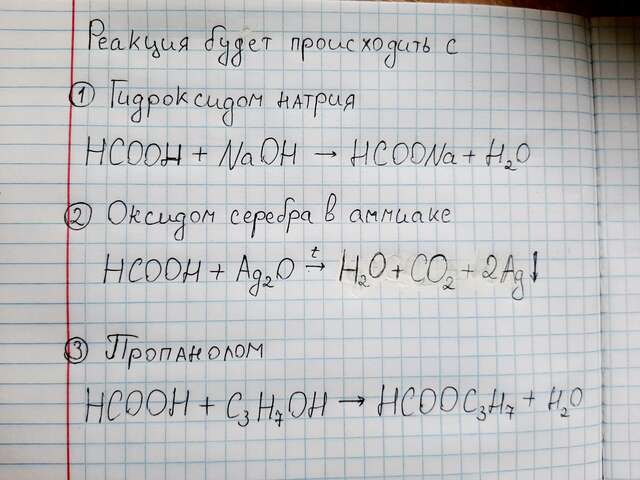 Реакция будет происходить с
① Гидроксидом натрия
HCOOH + NaOH → HCOONa + H₂O
② Оксидом серебра в аммиаке
HCOOH + Ag₂O →ᵗ H₂O + CO₂ + 2Ag↓
③ Пропанолом
HCOOH + C₃H₇OH → HCOOC₃H₇ + H₂O